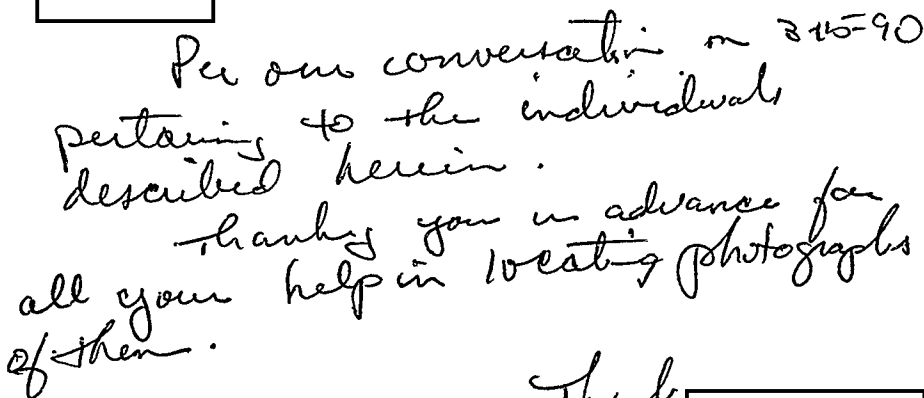 Per our conversation on 3-15-90
pertaining to the individuals
described herein.
Thanking you in advance for
all your help in locating photographs
of them.